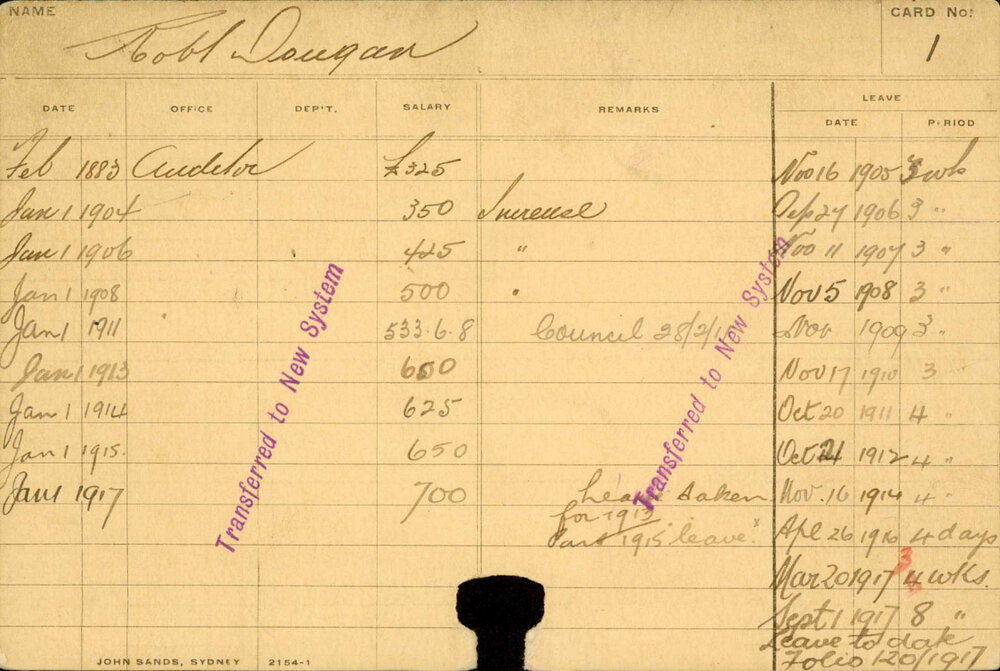 NAME CARD No:
Robt Dougan 1
DATE OFFICE DEP'T. SALARY REMARKS LEAVE
DATE PERIOD
Feb 1883 Auditor £325 Nov 16 1905 3 wks
Jan 1 1904 350 Increase Sep 27 1906 3 "
Jan 1 1906 425 " Nov 11 1907 3 "
Jan 1 1908 500 " Nov 5 1908 3 "
Jan 1 1911 533.6.8 Council 28/2/ Nov 1909 3 "
Jan 1 1913 600 Nov 17 1910 3
Jan 1 1914 625 Oct 20 1911 4 "
Jan 1 1915. 650 Oct 21 1912 4 "
Jan 1 1917 700 taken Nov. 16 1914 4 "
for 1913
1915 leave. Apl 26 1916 4 days
Mar 20 1917 4 wks.
3
Sept 1 1917 8 "
Leave to date
Folio 120/1917
Transferred to New System
Transferred to New System
JOHN SANDS, SYDNEY 2154-1